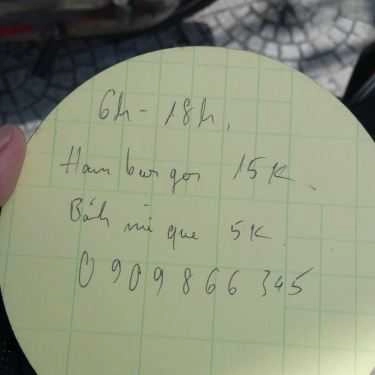 6h - 18h.
Hamburger 15K.
Bánh mì que 5K.
0909866345